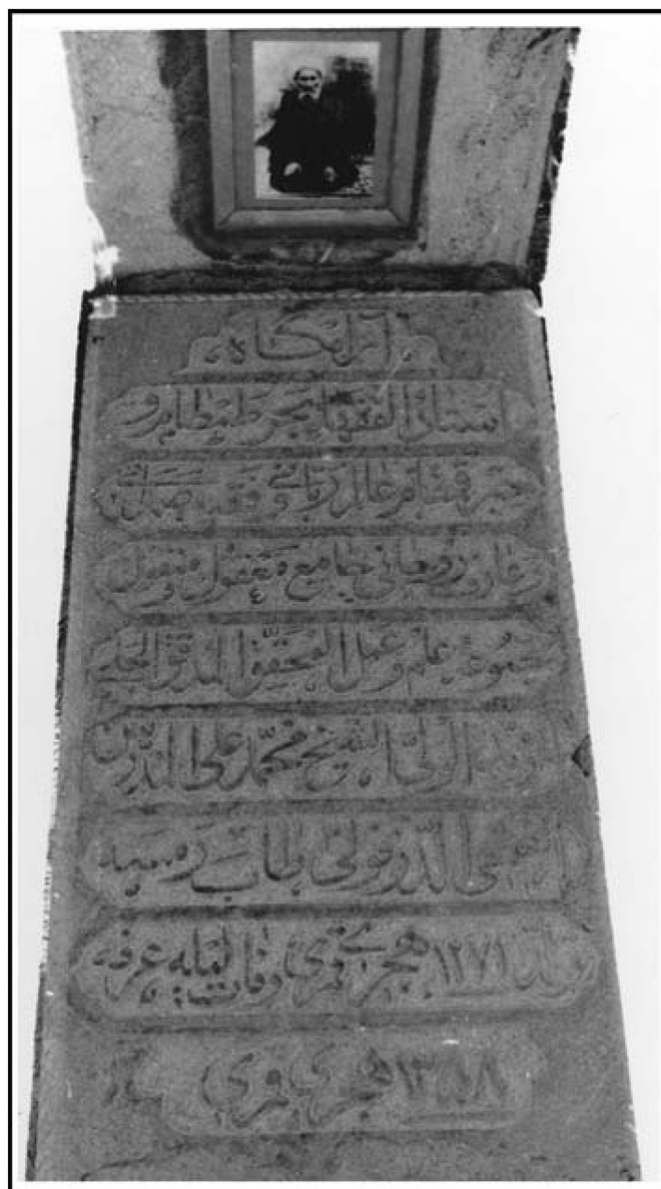 آرامگاه
استاذ الفقها بحر طمطام و
حبر قمقام عالم ربانی و فقیه صمدانی
و عارف معانی جامع معقول و منقول
مجموعه علم و عمل المحقق المدقق
الشیخ محمد علی المدرس
الدزفولی طاب رمسه
تولد ۱۲۷۱ هجری قمری وفات لیله عرفه
۱۳۸۸ هجری قمری